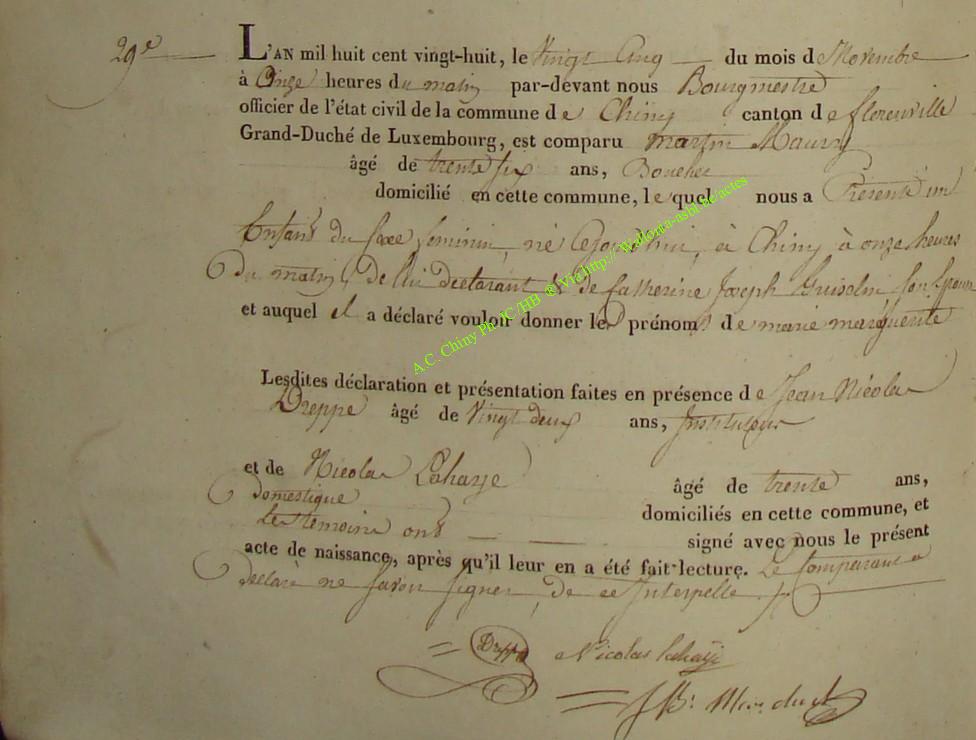 29e
L'AN mil huit cent vingt-huit, le Vingt Cinq du mois de Novembre
à Onze heures du matin par-devant nous Bourgmestre
officier de l'état civil de la commune de Chiny canton de florenville
Grand-Duché de Luxembourg, est comparu martin Maury
âgé de trente six ans, Boucher
domicilié en cette commune, le quel nous a Présenté un
Enfant du sexe feminin, né aujourd'hui, à Chiny à onze heures
du matin, de lui declarant & de Catherine Joseph son Epouse
et auquel il a déclaré vouloir donner les prénoms de marie marguerite
Lesdites déclaration et présentation faites en présence de Jean Nicolas
Dreppe âgé de Vingt deux ans, Instituteur
et de Nicolas Lahaye âgé de trente ans,
domestique domiciliés en cette commune, et
les temoins ont signé avec nous le présent
acte de naissance, après qu'il leur en a été fait lecture. Le Comparant a
declaré ne savoir signer, de ce Interpellé.
Nicolas lahaye
A.C. Chiny Ph JC/HB ® Via http://wallonia-asbl.be/actes